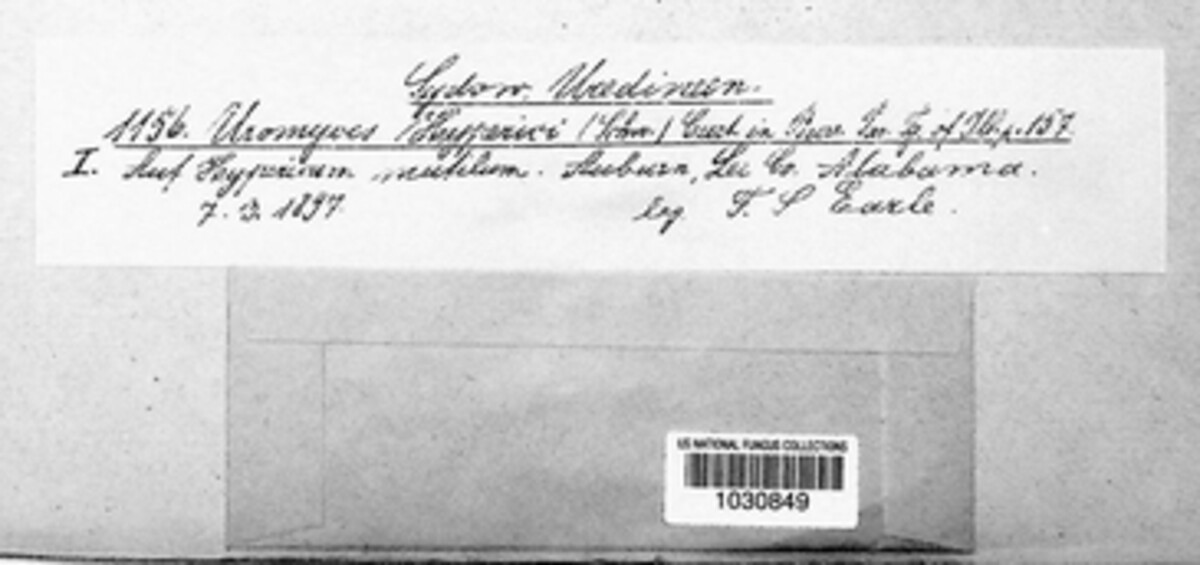 Sydow, Uredineen.
1156. Uromyces Hyperici (Schw.) Curt. in of Ill. p. 157
I. Auf Hypericum mutilum. Auburn, Lee Co. Alabama.
7. 3. 1897. leg. F. S. Earle.
US NATIONAL FUNGUS COLLECTIONS
1030849